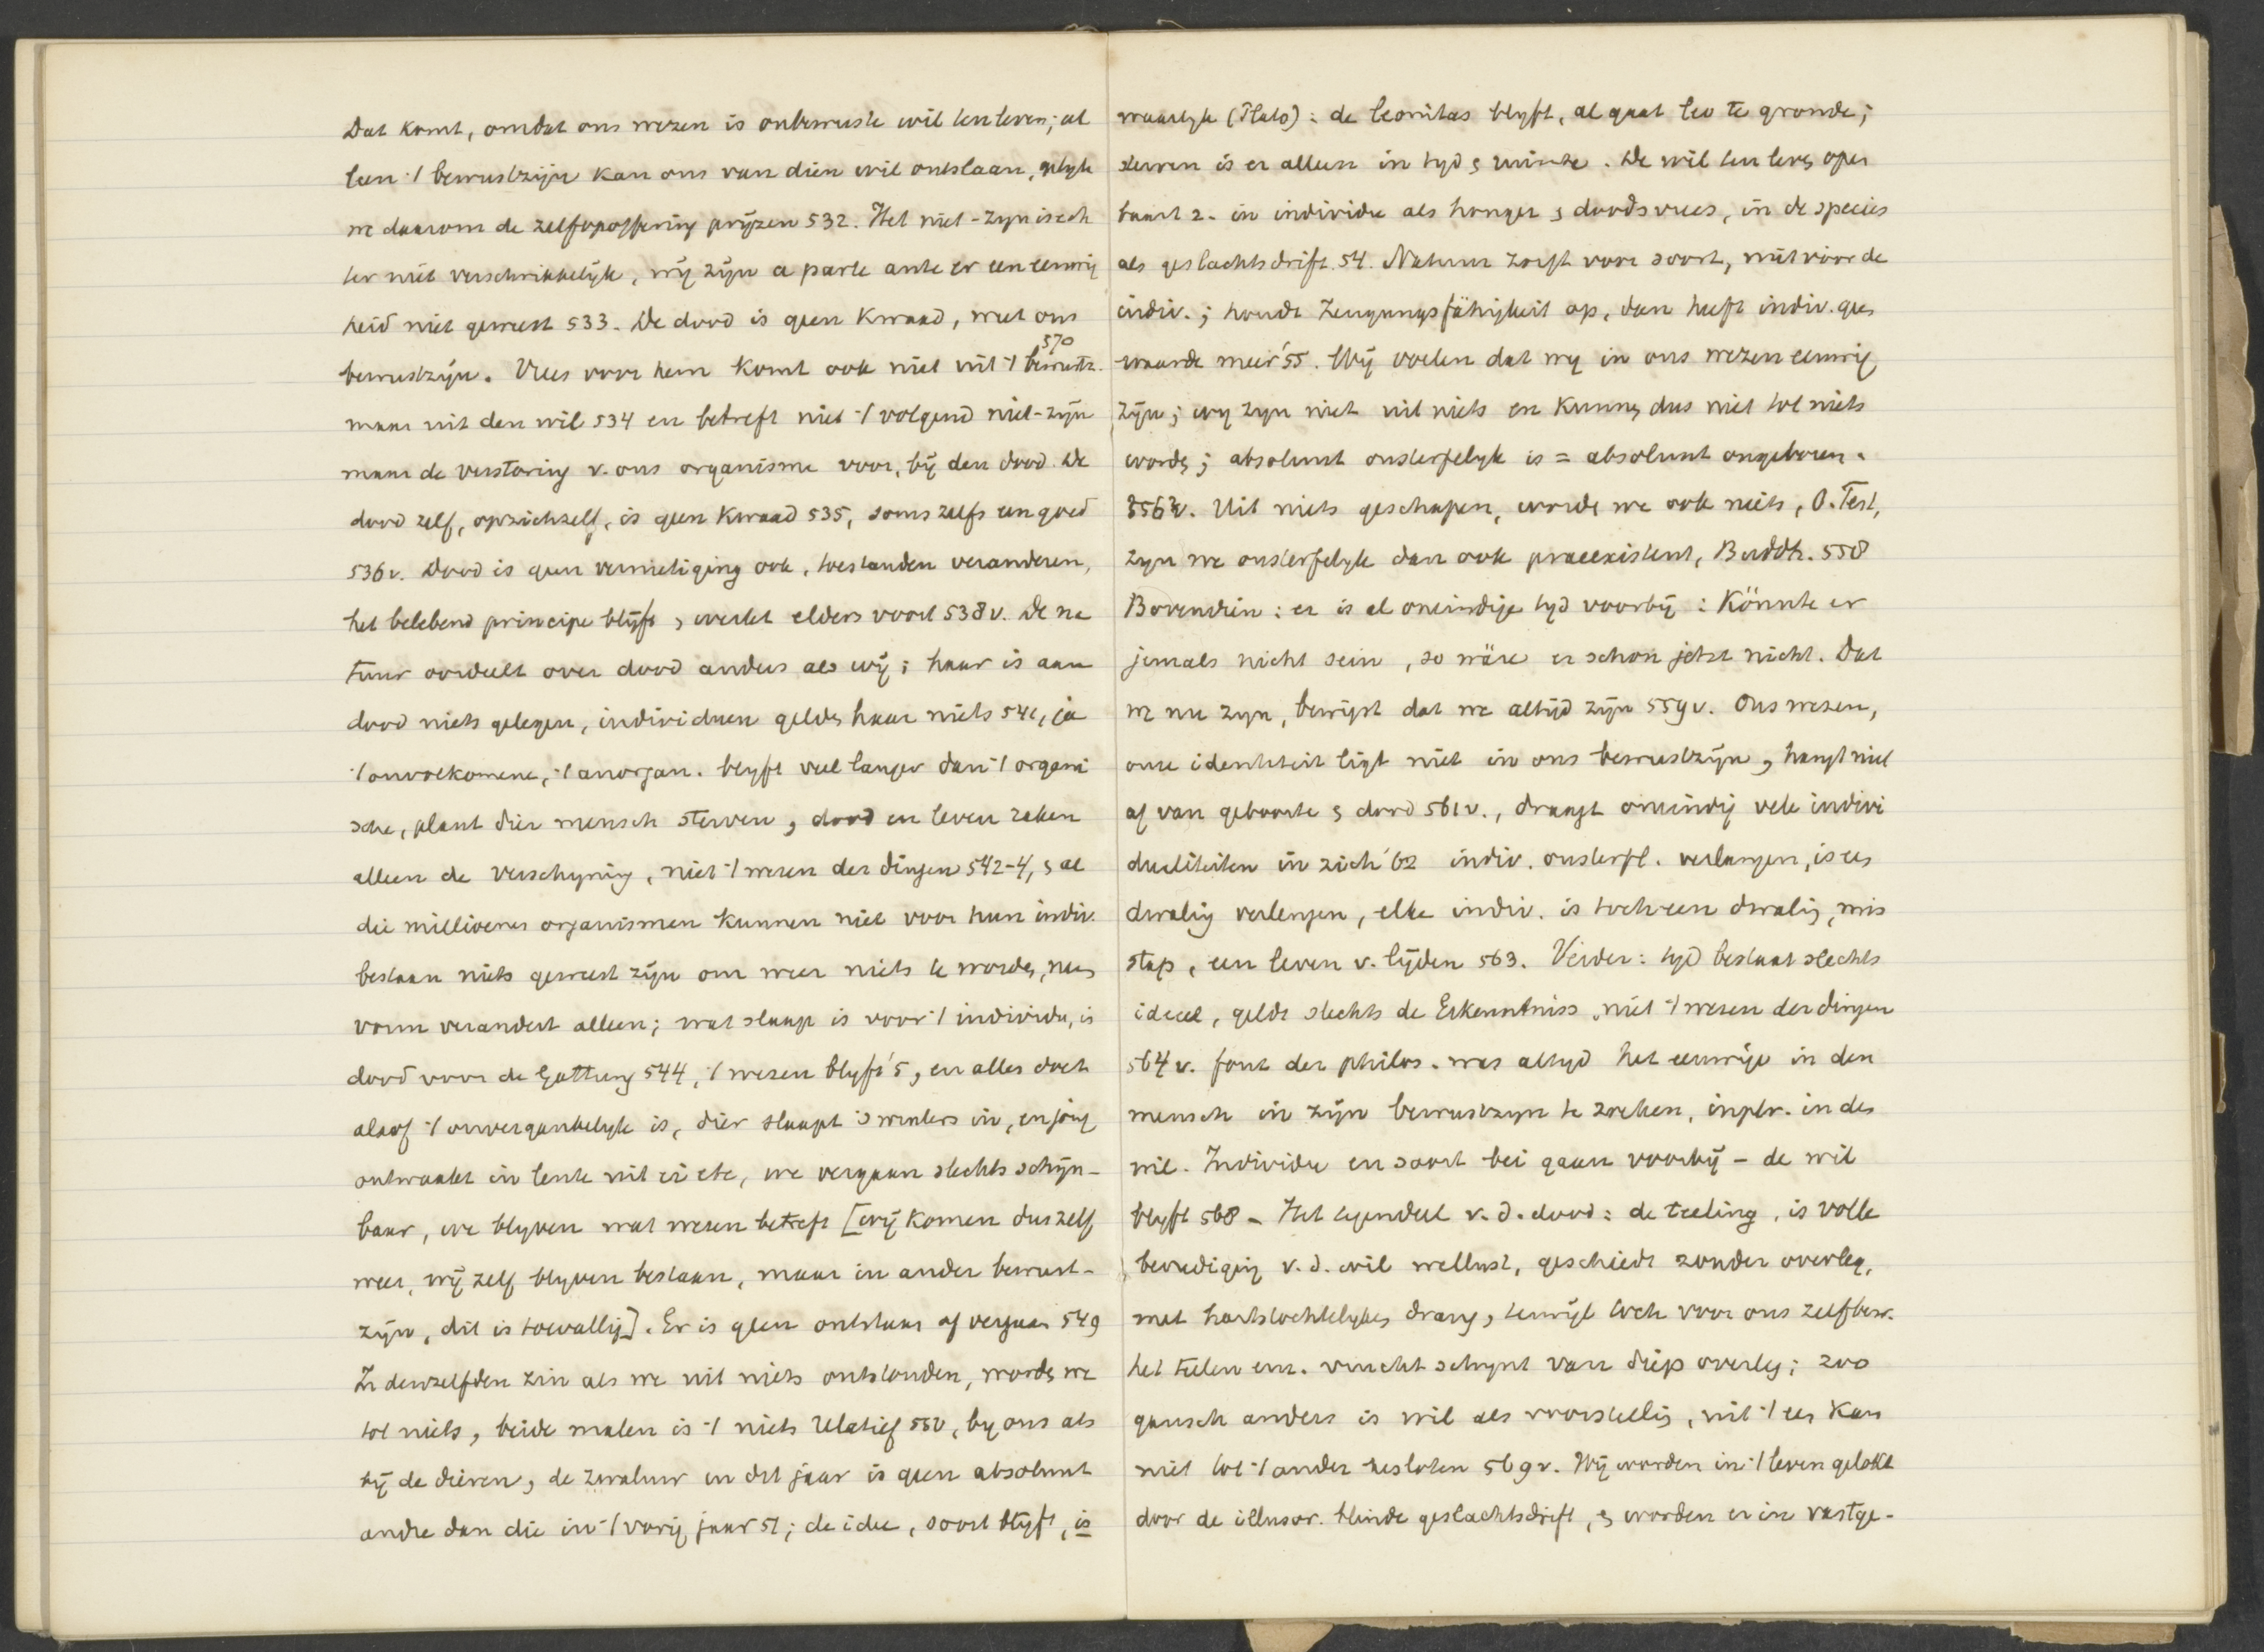 Dat komt, omdat ons wezen is onbewuste wil ten leven; al
leen 't bewustzijn kan ons van dien wil ontslaan, gelyk
we daarom de zelfopoffering prijzen 532. Het niet-zyn is ech
ter niet verschrikkelijk, wij zijn a parte ante er een eeuwig
heid niet geweest 533. De dood is geen kwaad, met ons
570
bewustzijn. Vrees voor hem komt ook niet uit 't bewustz.
maar uit den wil 534 en betreft niet 't volgend niet-zijn
maar de verstoring v. ons organisme voor, bij den dood. De
dood zelf, opzichzelf, is geen kwaad 535, soms zelfs een goed
536v. Dood is geen vernietiging ook, toestanden veranderen,
het belebend principe blijft, werkt elders voort 538v. De na
tuur oordeelt over dood anders als wij; haar is aan
dood niets gelegen, individuen gelden haar niets 541, ja
't onvolkomene, 't anorgan. blyft veel langer dan 't organi
sche, plant dier mensch sterven, dood en leven raken
alleen de verschyning, niet 't wesen der dingen 542-4, & al
die millioenen organismen kunnen niet voor hun indiv.
bestaan niets geweest zijn om weer niets te worden, neen
vorm verandert alleen; wat slaap is voor 't individu, is
dood voor de Gattung 544, 't wezen blyft '5, en alles doet
alsof 't onvergankelyk is, dier slaapt 's winters in, en jong
ontwaakt in lente uit ei etc, we vergaan slechts schijn-
baar, we blyven wat wesen betreft [wij komen dus zelf
weer, wij zelf blyven bestaan, maar in ander bewust-
zijn, dit is toevallig]. Er is geen ontstaan of vergaan 549
In denzelfden zin als we uit niets ontstonden, worden we
tot niets, beide malen is 't niets relatief 550, by ons als
bij de dieren, de zwaluw in dit jaar is geen absoluut
andre dan die in 't vorig jaar 51; de idee, soort blijft, is
waarlyk (Plato): de leonitas blyft, al gaat leo te gronde;
sterven is er alleen in tyd & ruimte. De wil ten leven open
baart z. in individu als honger & doodsvrees, in de species
als geslachtsdrift. 54. Natuur zorgt voor soort, niet vóór de
indiv.; houdt Zeugungsfähigkeit op, dan heeft indiv. geen
waarde meer '55. Wij voelen dat wy in ons wezen eeuwig
zijn; wy zyn niet uit niets en kunnen dus niet tot niets
worden; absoluut onsterfelyk is = absoluut ongeboren.
556v. Uit niets geschapen, worden we ook niets, O. Test,
zyn we onsterfelyk dan ook praeexistent, Buddh. 558
Bovendien: er is al oneindige tyd voorbij: Könnte er
jemals nicht sein, so wäre er schon jetzt nicht. Dat
we nu zyn, bewijst dat we altijd zijn 559v. Ons wesen,
onze identiteit ligt niet in ons bewustzijn, hangt niet
af van geboorte & dood 561v., draagt oneindig vele indivi
dualiteiten in zich '62 indiv. onsterfl. verlangen, is een
dwaling verlengen, elke indiv. is toch een dwaling, mis
stap, een leven v. lijden 563. Verder: tyd bestaat slechts
ideeel, geldt slechts de Erkenntniss, niet 't wesen der dingen
564v. fout der philos. was altyd het eeuwige in den
mensch in zijn bewustzyn te zoeken, inplv. in den
wil. Individu en soort bei gaan voorbij - de wil
blyft 568 - Het tegendeel v. d. dood: de teeling, is volle
bevrediging v. d. wil wellust, geschiedt zonder overleg,
met hartstochtelyken drang, terwijl toch voor ons zelfbew.
het telen enz. vrucht schynt van diep overleg; zoo
gansch anders is wil als voorstelling, uit 't een kan
niet tot 't ander besloten 569v. Wij worden in 't leven gelokt
door de illusor. blinde geslachtsdrift, & worden er in vastge-